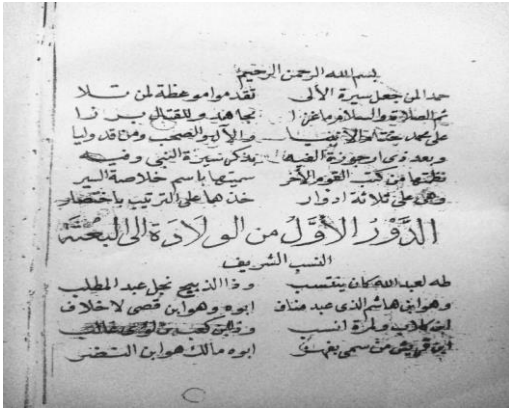 بسم الله الرحمن الرحيم
حمدا لمن جعل سيرة الألى تقدموا موعظة لمن تلا
ثم الصلاة والسلام ما غزا مجاهد وللقتال برزا
على محمد ختام الأنبيا والآل والصحب ومن قد وليا
وبعد ذى ارجوزة الفيه بذكر سيرة النبى وفيه
نظمتها من كتب القوم الأخر سميتها باسم خلاصة السير
وهى على ثلاثة ادوار خذها على الترتيب باختصار
الدَّوْرُ الأَوَّلُ من الولادة الى البعثة
النسب الشريف
طه لعبد الله كان ينتسب وذا الذبيح نجل عبد المطلب
وهو ابن هاشم الذى عبد مناف ابوه وهو ابن قصى لا خلاف
ابن كلاب ولمرة انسب
ابن قريش من سمى بفهر ابوه مالك هو ابن النضر